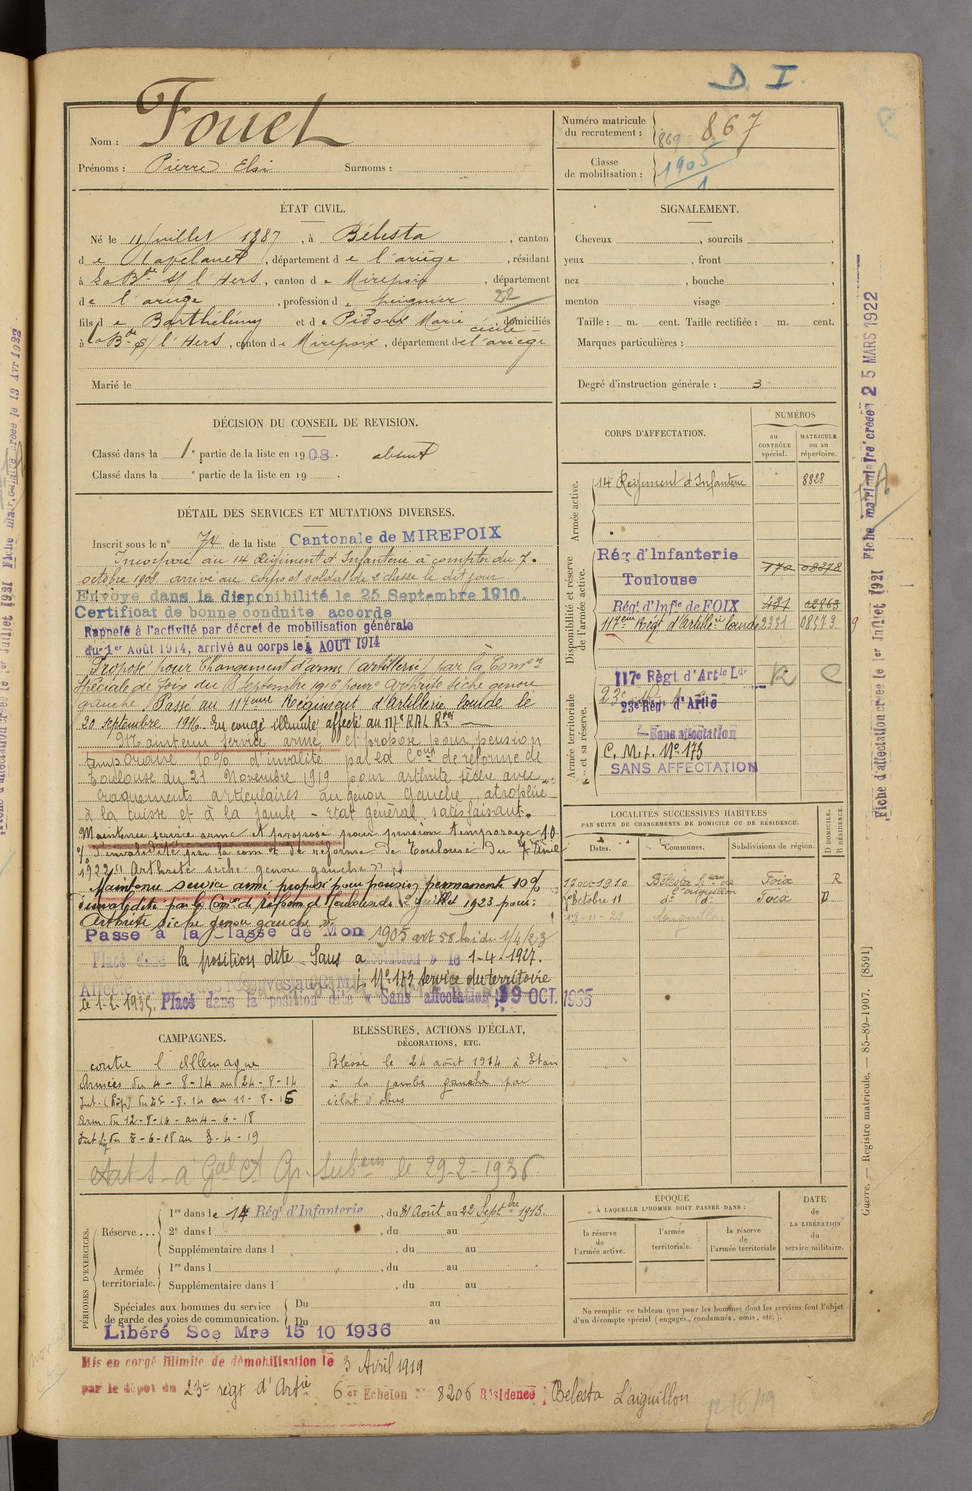 D. I.
Nom : Fouet
Prénoms : Pierre Elsi Surnoms :
Numéro matricule du recrutement : 869 867
Classe de mobilisation : 1905
ÉTAT CIVIL.
Né le 11 juillet 1887, à Bélesta, canton
de Lapelanet, département de l'ariège, résidant
à La Bde s/ l'Hers, canton de Mirepoix, département
de l'ariège, profession de peignier 22
fils de Barthélémy et de Pidoux Marie cécile domiciliés
à la Bde s/ l'Hers, canton de Mirepoix, département de l'ariège
Marié le
SIGNALEMENT.
Cheveux , sourcils ,
yeux , front ,
nez , bouche ,
menton visage .
Taille : m. cent. Taille rectifiée : m. cent.
Marques particulières :
Degré d'instruction générale : 3
DÉCISION DU CONSEIL DE REVISION.
Classé dans la 1e partie de la liste en 1908. absent
Classé dans la e partie de la liste en 19 .
DÉTAIL DES SERVICES ET MUTATIONS DIVERSES.
Inscrit sous le n° 74 de la liste Cantonale de MIREPOIX
Incorporé au 14 Régiment d'Infanterie à compter du 7.
octobre 1908 arrivé au corps et soldat de 2e classe le dit jour
Envoyé dans la disponibilité le 25 Septembre 1910.
Certificat de bonne conduite accordé
Rappelé à l'activité par décret de mobilisation générale
du 1er Août 1914, arrivé au corps le 4 AOUT 1914
Proposé pour changement d'arme (artillerie) par la Comon
Spéciale de Foix du 8 Septembre 1916 pour: Arthrite sèche genou
gauche. Passé au 117ème Régiment d'artillerie lourde le
20 septembre 1916. En congé illimité affecté au 117e R.A.L.
Maintenu service armé et proposé pour pension
temporaire 10% d'invalité par la Con de réforme de
Toulouse du 21 Novembre 1919 pour arthrite sèche avec
craquements articulaires au genou gauche, atrophie
à la cuisse et à la jambe - Etat général satisfaisant.
Maintenu service armé et proposé pour pension temporaire 10
% d'invalidité par la com. de réforme de Toulouse du
1922 "Arthrite sèche genou gauche"
Maintenu service armé proposé pour pension permanente 10%
d'invalidité par la Con de réforme de Toulouse du juillet 1923 pour:
Arthrite sèche genou gauche
Passé à la classe de Mon 1905 art 58 loi du 1/4/23
Placé dans la position dite Sans affectation le 1-4-1927.
No 173 service du territoire
le 1-2-1935. Placé dans la position dite « Sans affectation » 19 OCT. 1935
CORPS D'AFFECTATION.
NUMÉROS
au CONTRÔLE spécial.
MATRICULE ou au répertoire.
Armée active.
14 Régiment d'Infanterie 8828
Disponibilité et réserve de l'armée active.
Rég d'Infanterie
Toulouse 08278
Rég. d'Infie de FOIX 421 02963
117ème Régt d'artillerie lourde 2331 08573
Armée territoriale et sa réserve.
117e Règt d'Artie Lde
23e Rég d'Artie
Sans affectation
C. M. I. No 173
SANS AFFECTATION
LOCALITÉS SUCCESSIVES HABITÉES
PAR SUITE DE CHANGEMENTS DE DOMICILE OU DE RÉSIDENCE.
Dates. Communes. Subdivisions de région. D DOMICILE. R RÉSIDENCE.
17 oct 1910 Bélesta l'aiguillon Foix R
Octobre 11 do do Foix D
CAMPAGNES.
contre l'Allemagne
Armées du 4-8-14 au 24-8-14
Int. (hôp) du 25-8-14 au 11-8-16
Arm. du 12-8-16 au 4-6-18
Int. du 5-6-18 au 3-4-19
BLESSURES, ACTIONS D'ÉCLAT,
DÉCORATIONS, ETC.
Blessé le 24 août 1914 à Etan
à la jambe gauche par
éclat d'obus
le 29-2-1936
PÉRIODES D'EXERCICES.
Réserve ...
1re dans le 14 Rég' d'Infanterie, du 31 Août au 22 Septbre 1913.
2e dans l , du au
Supplémentaire dans l , du au
Armée territoriale.
1re dans l , du au
Supplémentaire dans l , du au
Spéciales aux hommes du service de garde des voies de communication.
Du au
Du au
Libéré Sce Mre 15 10 1936
ÉPOQUE
À LAQUELLE L'HOMME DOIT PASSER DANS :
la réserve de l'armée active.
l'armée territoriale.
la réserve de l'armée territoriale
DATE de LA LIBÉRATION du service militaire.
Ne remplir ce tableau que pour les hommes dont les services font l'objet
d'un décompte spécial (engagés, condamnés, omis, etc.).
Mis en congé illimité de démobilisation le 3 Avril 1919
par le dépôt du 23e régt d'Artie 6er Echelon No 8206 Résidence : Bélesta L'aiguillon
Fiche d'affectation créée le 1er Juillet 1921 Fiche matriculaire créée 25 MARS 1922
Guerre. — Registre matricule. — 85-89-1907. [8591]